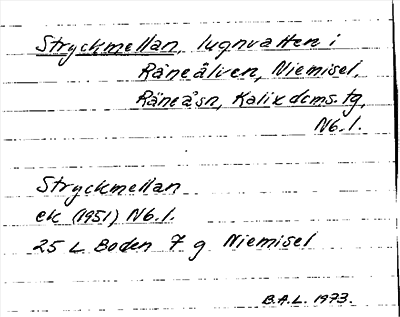 Stryckmellan, lugnvatten i
Råneälven, Niemisel,
Råneå sn, Kalix dcms. tg,
Nb. l.
Stryckmellan
ek (1951) Nb. l.
25 L Boden 7 g Niemisel
B.A.L. 1973.